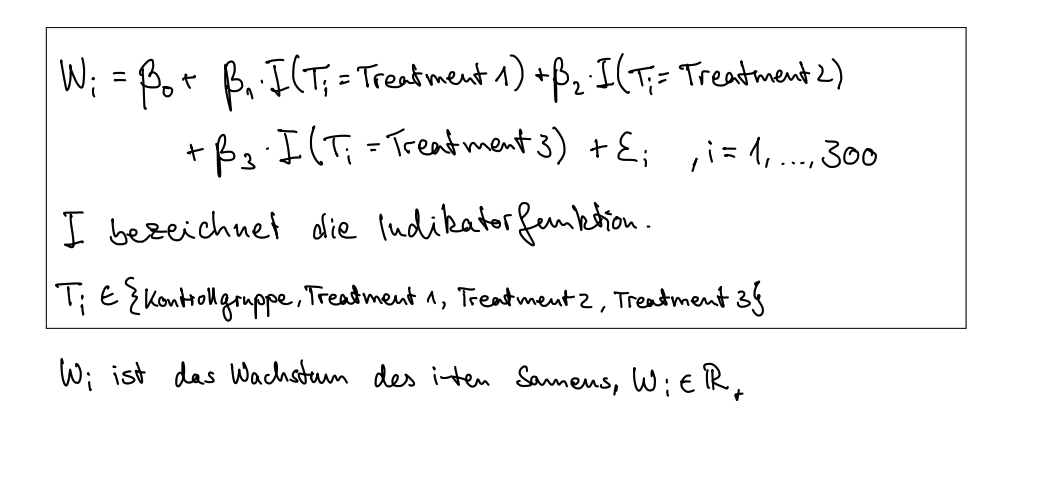 W_i = β_0 + β_1 · I(T_i = Treatment 1) + β_2 · I(T_i = Treatment 2)
+ β_3 · I(T_i = Treatment 3) + ε_i , i = 1, ..., 300
I bezeichnet die Indikatorfunktion.
T_i ∈ {Kontrollgruppe, Treatment 1, Treatment 2, Treatment 3}
W_i ist das Wachstum des i-ten Samens, W_i ∈ ℝ_+